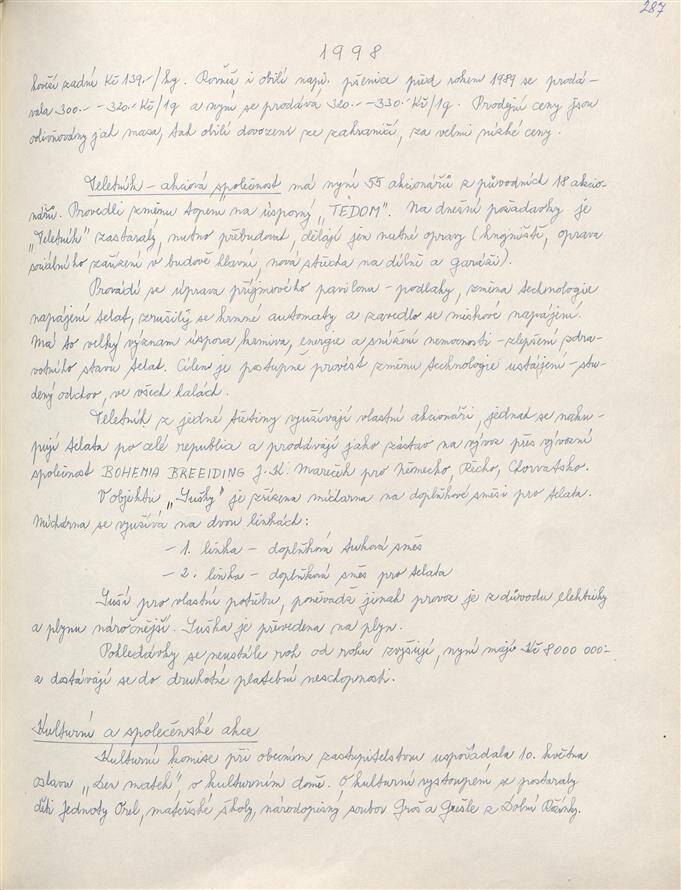 287
1998
hovězí zadní Kč 139.-/kg. Rovněž i obilí např. pšenice před rokem 1989 se prodá-
vala 300.- - 320.- Kč/1q a nyní se prodává 320.- - 330.- Kč/1q. Prodejní ceny jsou
ovlivňovány jak masa, tak obilí dovozem ze zahraničí, za velmi nízké ceny.
Teletník - akciová společnost má nyní 55 akcionářů z původních 18 akcio-
nářů. Provedli změnu topení na úsporný "TEDOM". Na dnešní požadavky je
"Teletník" zastaralý, nutno přebudovat, dělají jen nutné opravy (hnojiště, oprava
sociálního zařízení v budově hlavní, nová střecha na dílně a garáži).
Provádí se úprava příjmového pavilonu - podlahy, změna technologie
napájení telat, zrušily se krmné automaty a zavedlo se miskové napájení.
Má to velký význam úspora krmiva, energie a snížení nemocnosti - zlepšení zdra-
votního stavu telat. Cílem je postupně provést změnu technologie ustájení - stu-
dený odchov, ve všech halách.
Teletník z jedné třetiny využívají vlastní akcionáři, jednak se naku-
pují telata po celé republice a prodávají jako zástav na vývoz přes vývozní
společnost BOHEMIA BREEIDING J. K. Mareček pro Německo, Řecko, Chorvatsko.
V objektu "Sušky" je zřízena míchárna na doplňkové směsi pro telata.
Míchárna se využívá na dvou linkách:
- 1. linka - doplňková tuková směs
- 2. linka - doplňková směs pro telata
Suší pro vlastní potřebu, poněvadž jinak provoz je z důvodu elektriky
a plynu náročnější. Suška je převedena na plyn.
Pohledávky se neustále rok od roku zvyšují, nyní mají Kč 8 000 000.-
a dostávají se do druhotné platební neschopnosti.
Kulturní a společenské akce
Kulturní komise při obecním zastupitelstvu uspořádala 10. května
oslavu "Den matek", v kulturním domě. O kulturní vystoupení se postaraly
děti Jednoty Orel, mateřské školy, národopisný soubor Groš a Grešle z Dolní Rožínky.